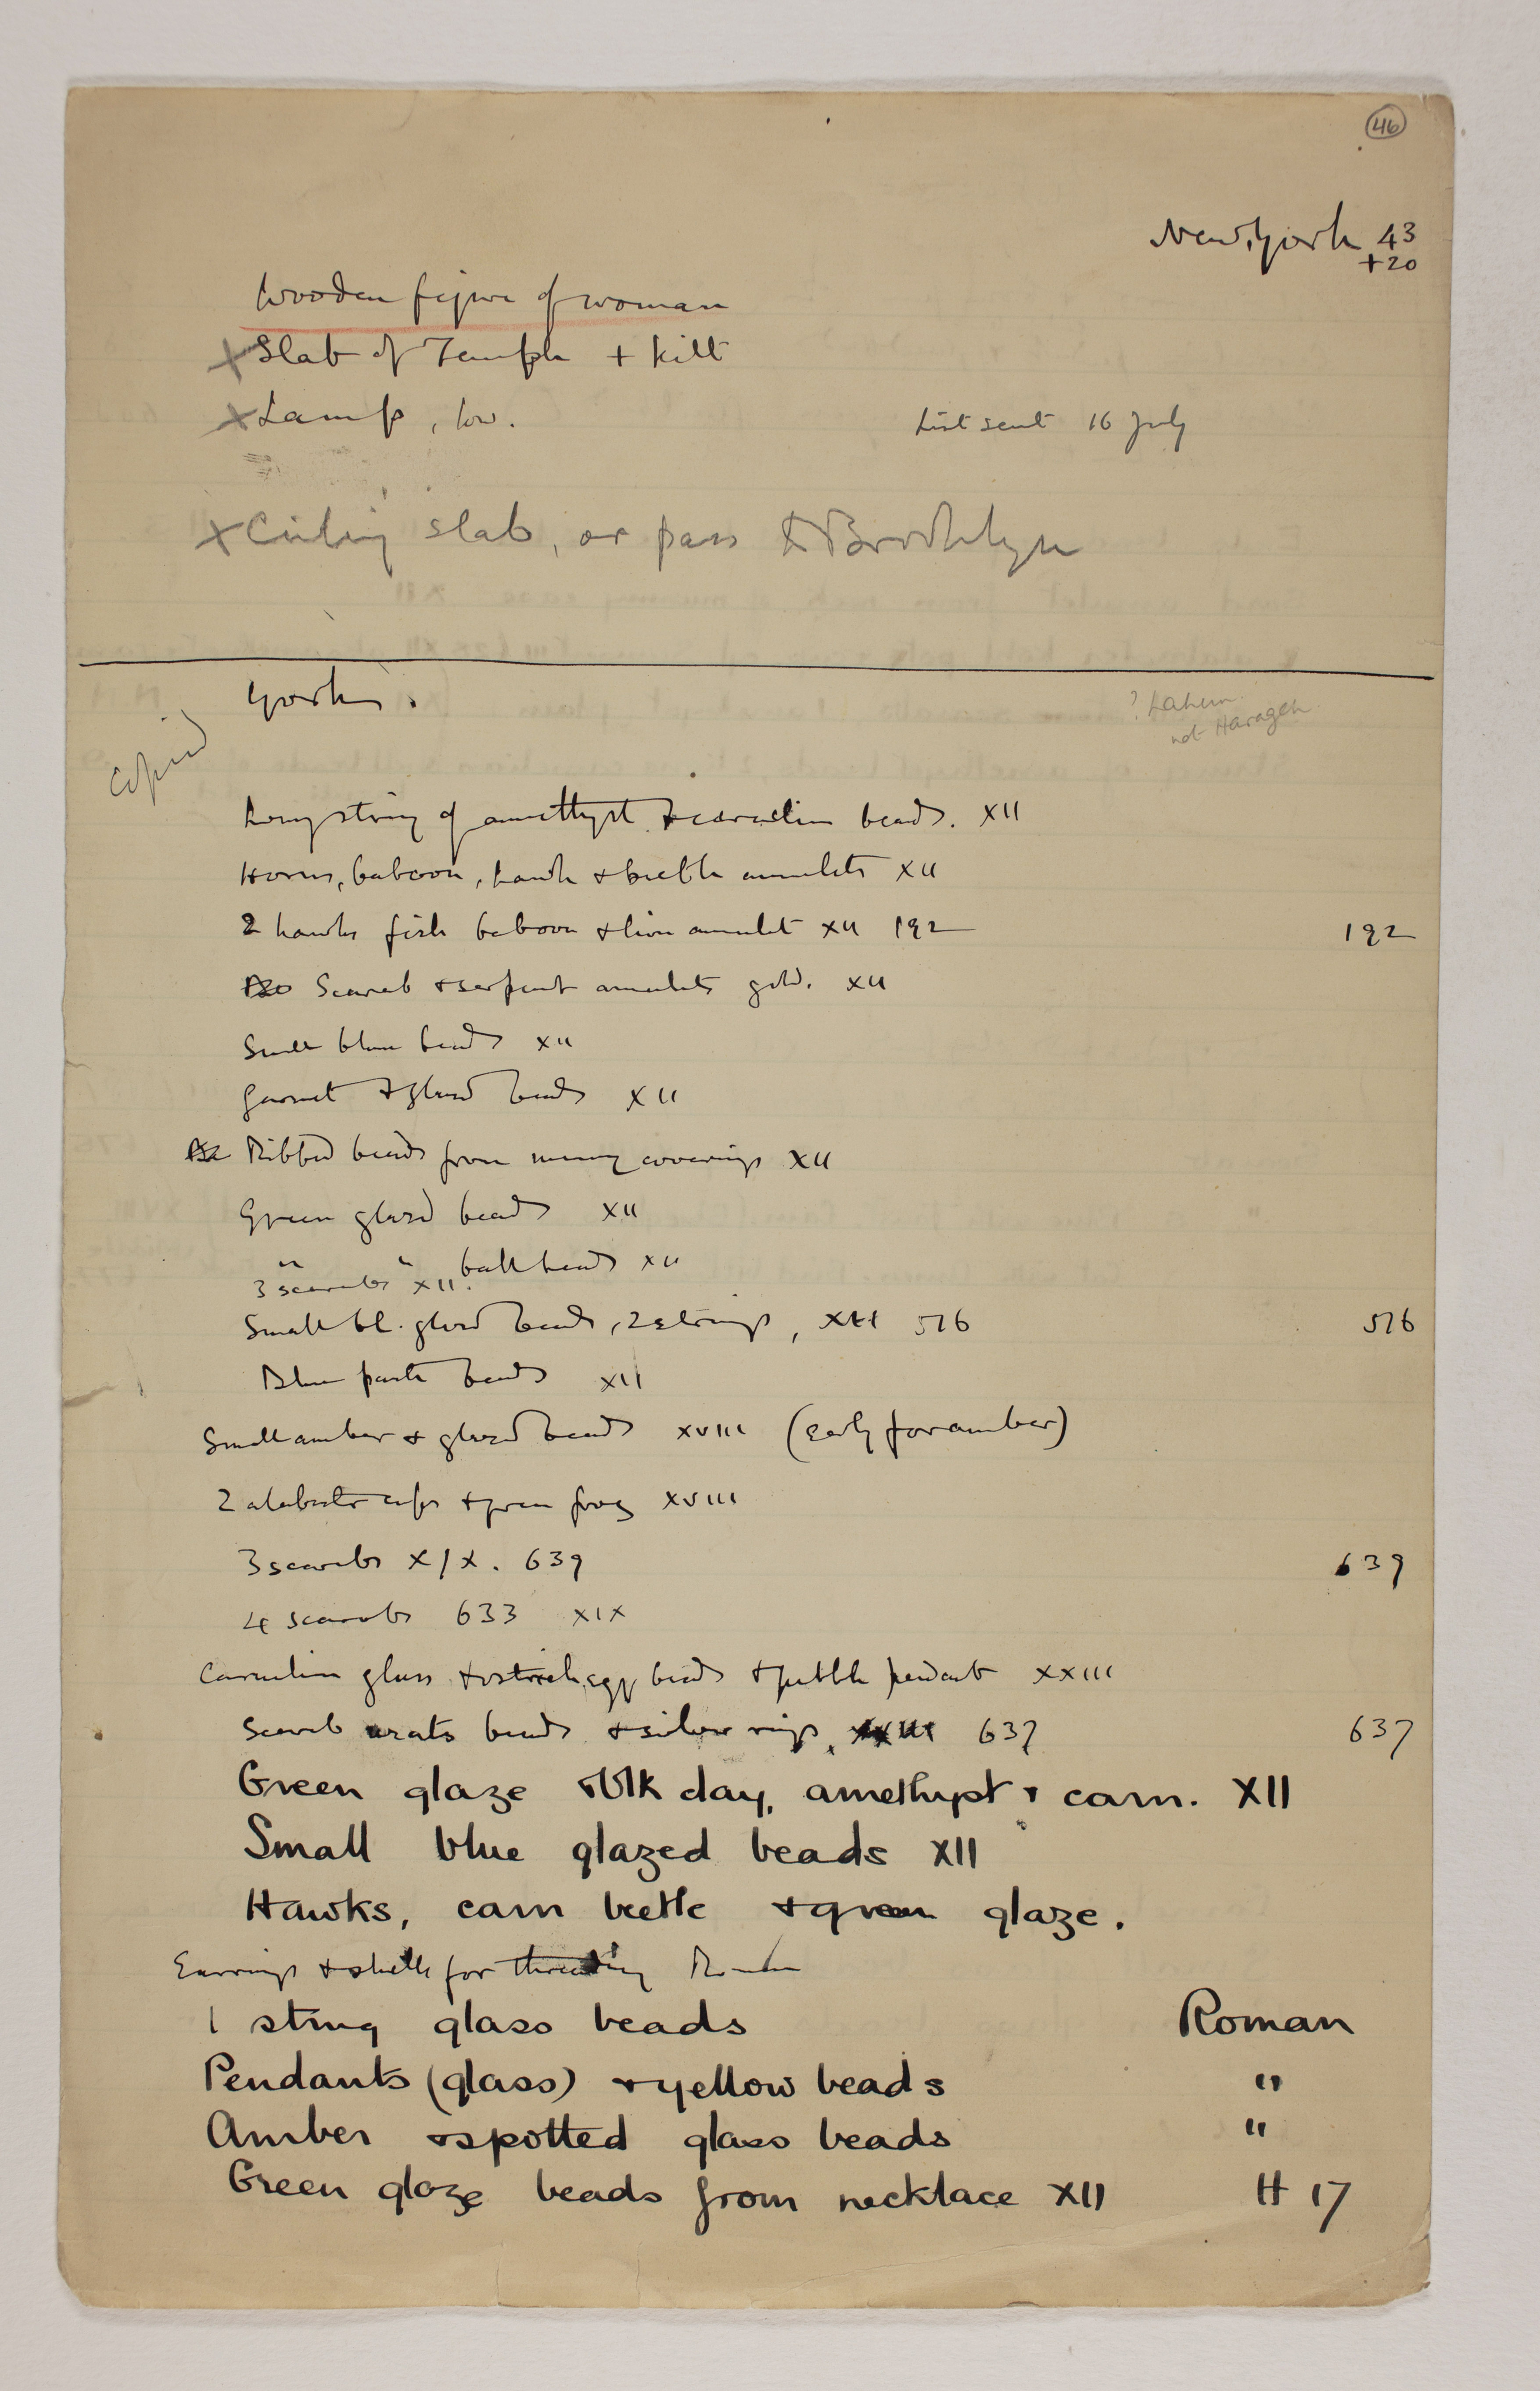 46
New York 43
+20
Wooden figure of woman
X Slab of Temple + kilt
X Lamp, low.
List sent 16 July
X Ceiling slab, or pass to Brooklyn
York.
? Lahun
not Harageh
Copied
Long string of amethyst & carnelian beads. XII
Horus, baboon, hawk & beetle amulets XII
2 hawks fish baboon & lion amulet XII 192 192
Scarab & serpent amulets gold. XII
Small blue beads XII
Garnet & glazed beads XII
Ribbed beads from mummy coverings XII
Green glazed beads XII
" " ball beads XII
3 scarabs XII.
Small bl. glazed beads, 2 strings, XII 516 516
Blue paste beads XII
Small amber & glazed beads XVIII (Early for amber)
2 alabaster cups & green frog XVIII
3 scarabs XIX. 639 639
4 scarabs 633 XIX
Carnelian glass & ostrich egg beads & pebble pendant XXIII
Scarab uzats beads & silver rings, XXIII 637 637
Green glaze & blk day, amethyst & carn. XII
Small blue glazed beads XII
Hawks, carn beetle & green glaze.
Earrings & shells for threading Roman
1 string glass beads Roman
Pendants (glass) & yellow beads "
Amber & spotted glass beads "
Green glaze beads from necklace XII H 17